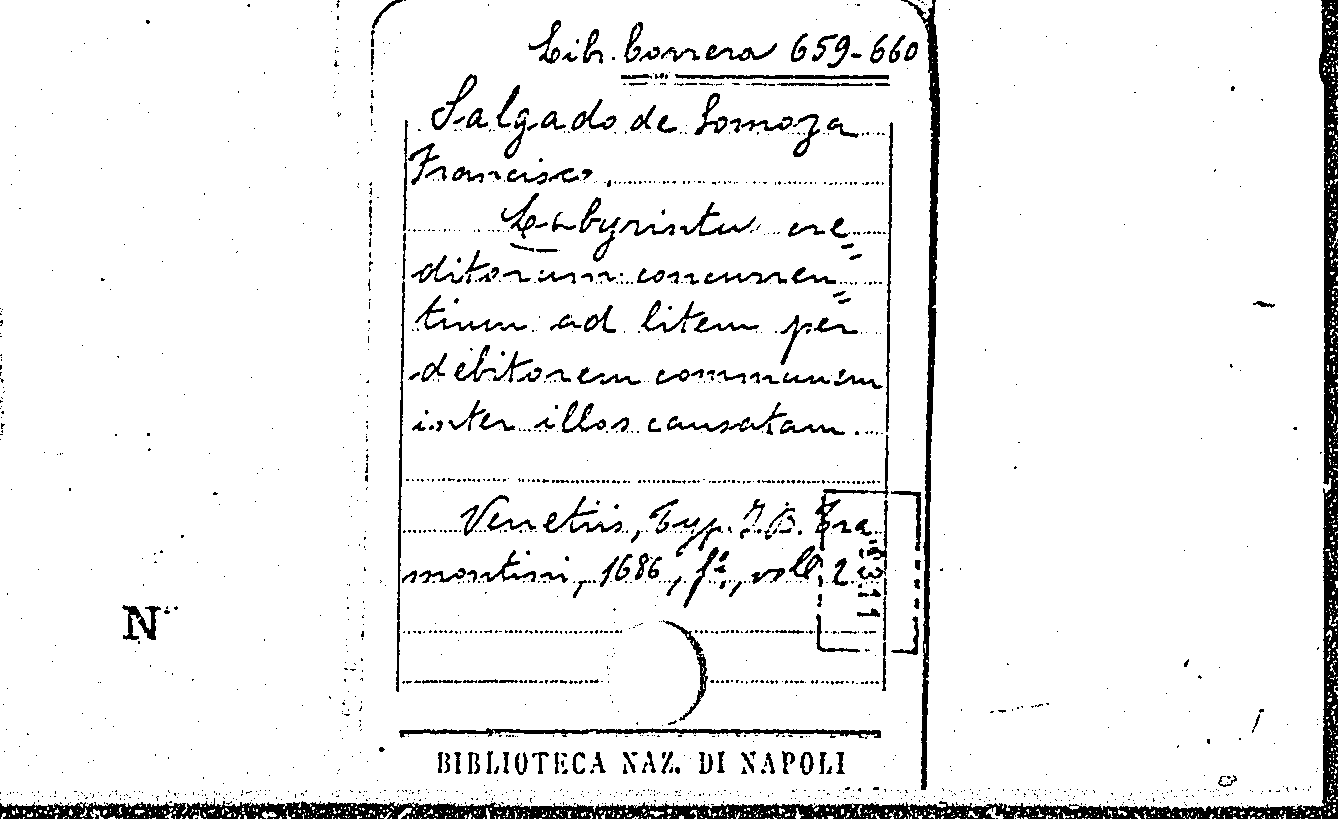 Lib. Correra 659-660
Salgado de Somoza
Francisco.
Labyrintu cre=
ditorum concurren=
tium ad litem per
debitorem communem
inter illos causatam.
Venetiis, Typ. J. B. Tra
montini, 1686, fº, voll. 2
N
BIBLIOTECA NAZ. DI NAPOLI